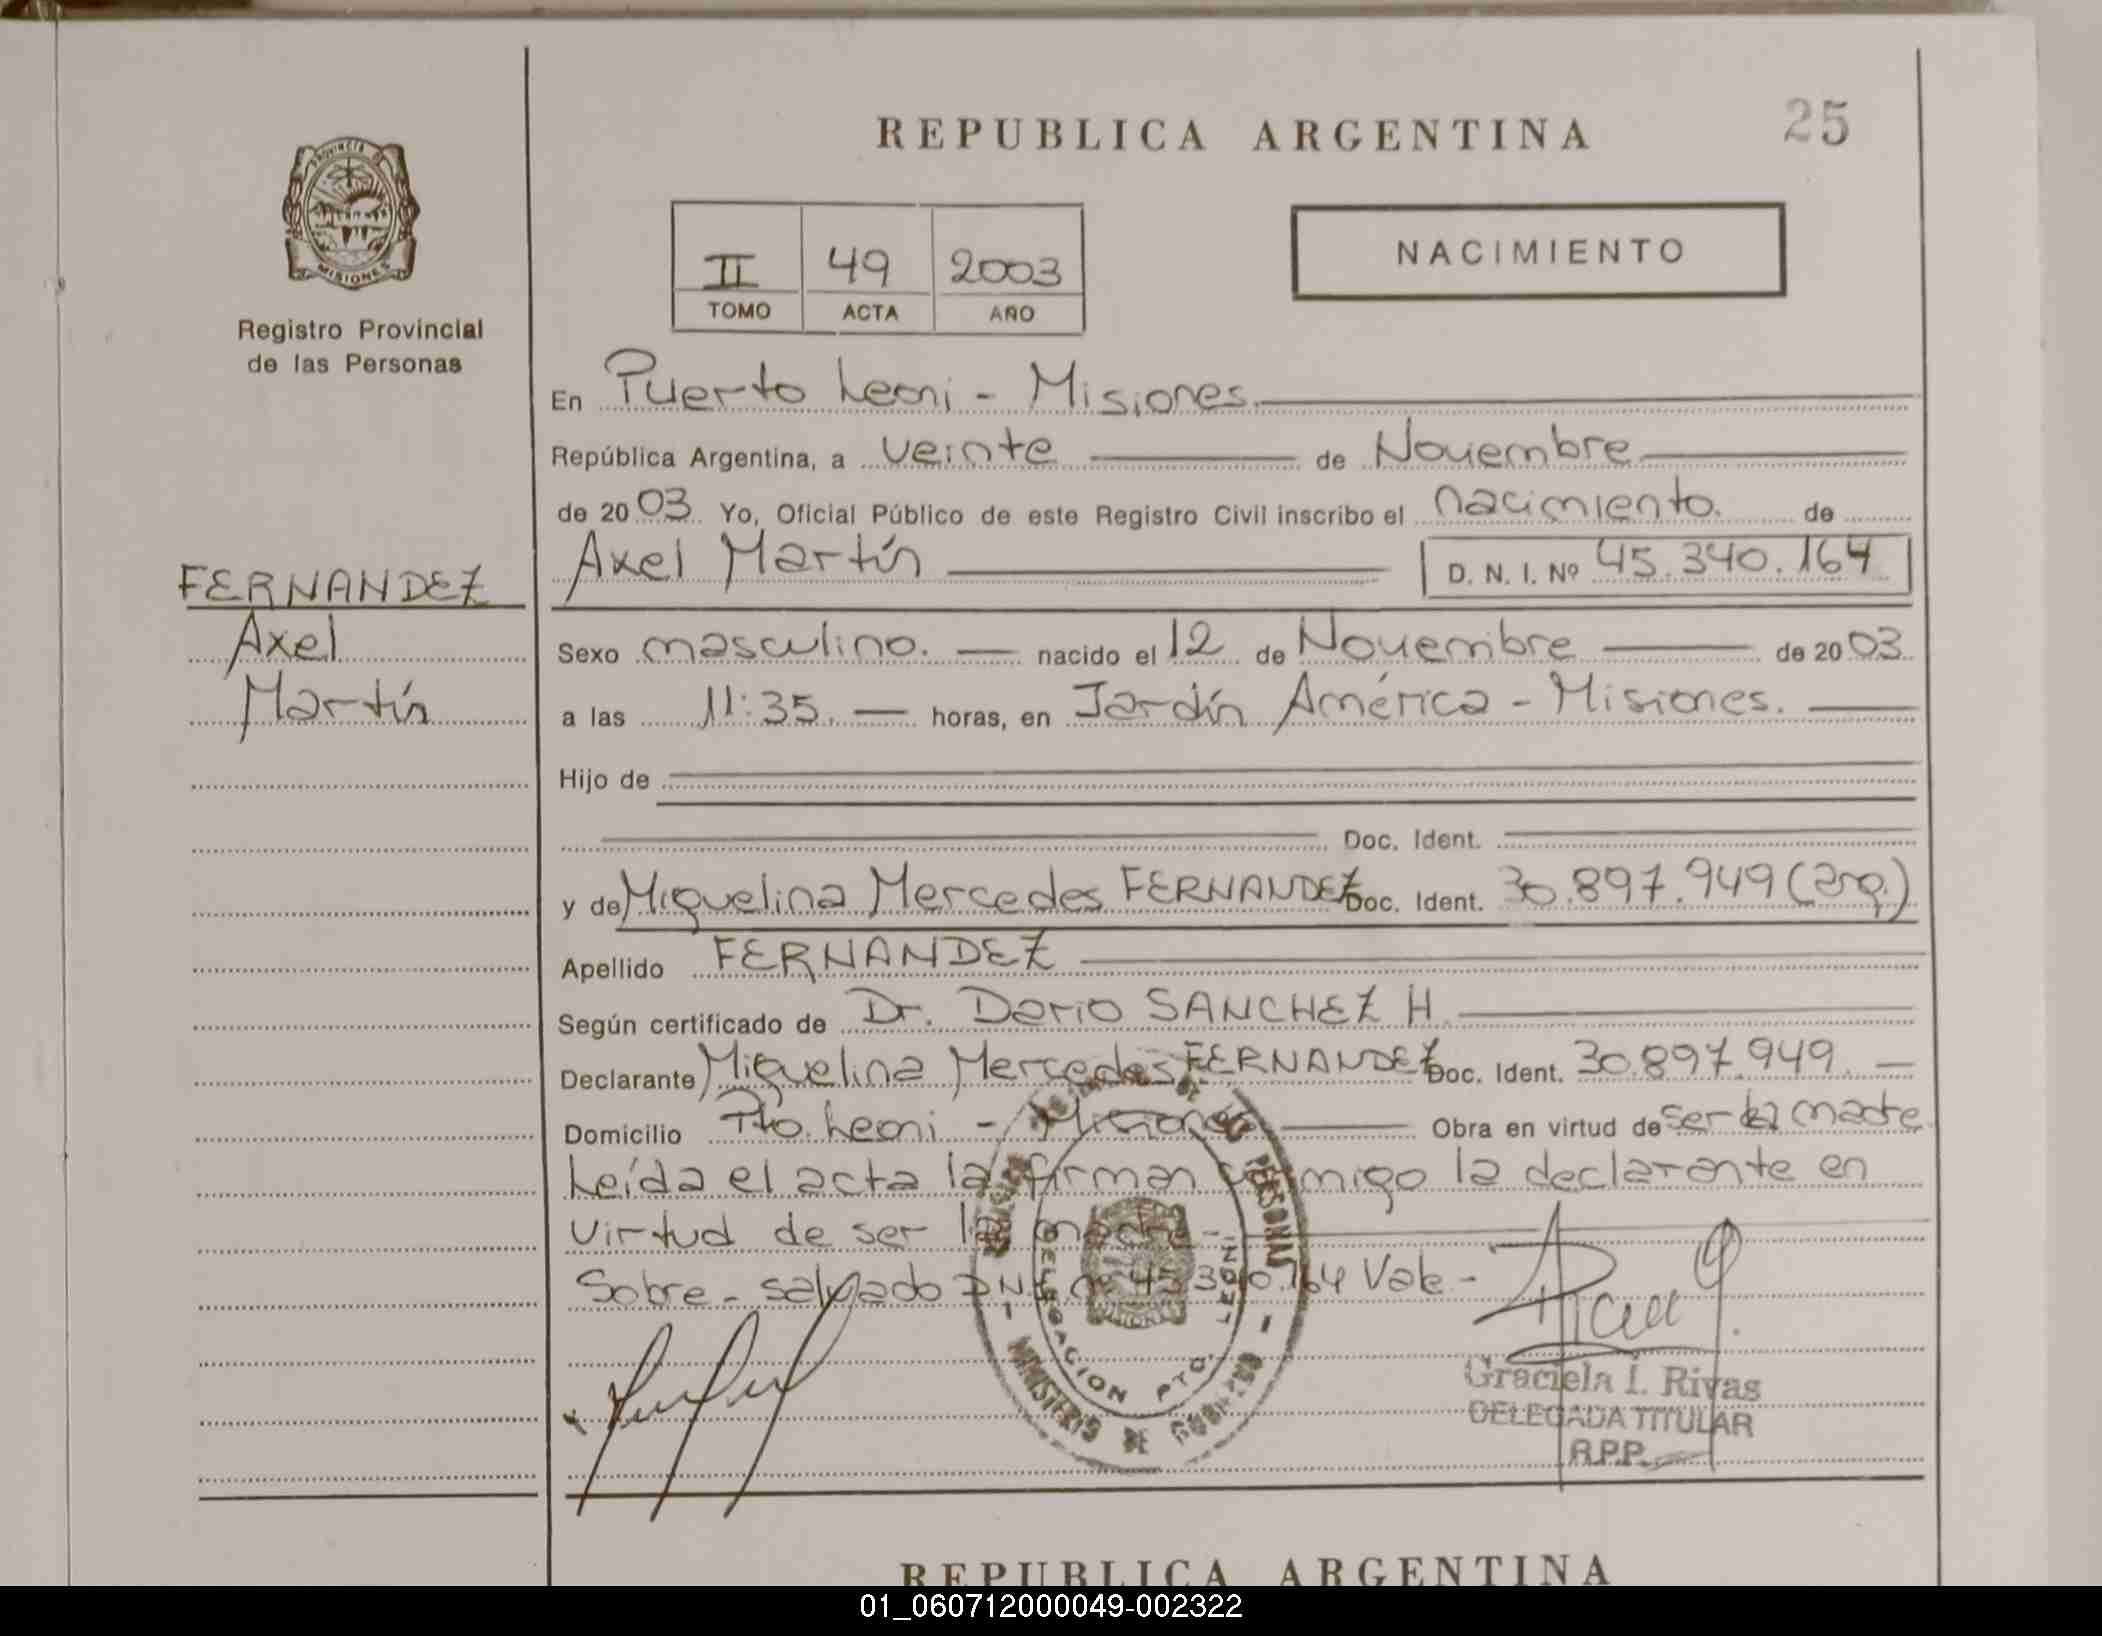 REPUBLICA ARGENTINA
25
PROVINCIA DE
MISIONES
Registro Provincial
de las Personas
II 49 2003
TOMO ACTA AÑO
NACIMIENTO
En Puerto Leoni - Misiones.
República Argentina, a veinte de Noviembre
de 2003 Yo, Oficial Público de este Registro Civil inscribo el nacimiento. de
Axel Martín D. N. I. Nº 45.340.164
FERNANDEZ
Axel
Martín
Sexo masculino. nacido el 12 de Noviembre de 2003
a las 11:35. horas, en Jardín América - Misiones.
Hijo de
Doc. Ident.
y de Miguelina Mercedes FERNANDEZ Doc. Ident. 30.897.949 (arg.)
Apellido FERNANDEZ
Según certificado de Dr. Dario SANCHEZ H
Declarante Miguelina Mercedes FERNANDEZ Doc. Ident. 30.897.949.
Domicilio Pto. Leoni - Misiones Obra en virtud de ser la madre
Leída el acta la firman conmigo la declarante en
virtud de ser la madre.-
Sobre - salvado DNI nº 45.340.164 Vale -
PERSONAS
DELEGACION PTO. LEONI
MINISTERIO DE GOBIERNO
Graciela I. Rivas
DELEGADA TITULAR
R.P.P.
REPUBLICA ARGENTINA
01_060712000049-002322